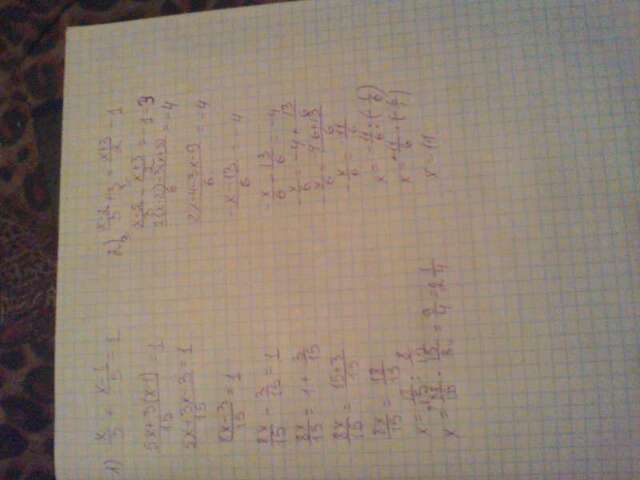 1) x/3 + x-1/5 = 1
5x+3(x-1)/15 = 1
5x+3x-3/15 = 1
8x-3/15 = 1
8x/15 - 3/15 = 1
8x/15 = 1 + 3/15
8x/15 = 15+3/15
8x/15 = 18/15
x = 18/15 : 8/15
x = 18/15 · 15/8 = 9/4 = 2 1/4
2) x-2/3 + 3 = x+3/2 - 1
x-2/3 - x+3/2 = -1-3
2(x-2)-3(x+3)/6 = -4
2x-4-3x-9/6 = -4
-x-13/6 = -4
-x/6 - 13/6 = -4
-x/6 = -4 + 13/6
-x/6 = 
-x/6 = 11/6
x = -11/6 : (-1/6)
x = -11/6 · (-6/1)
x = 11